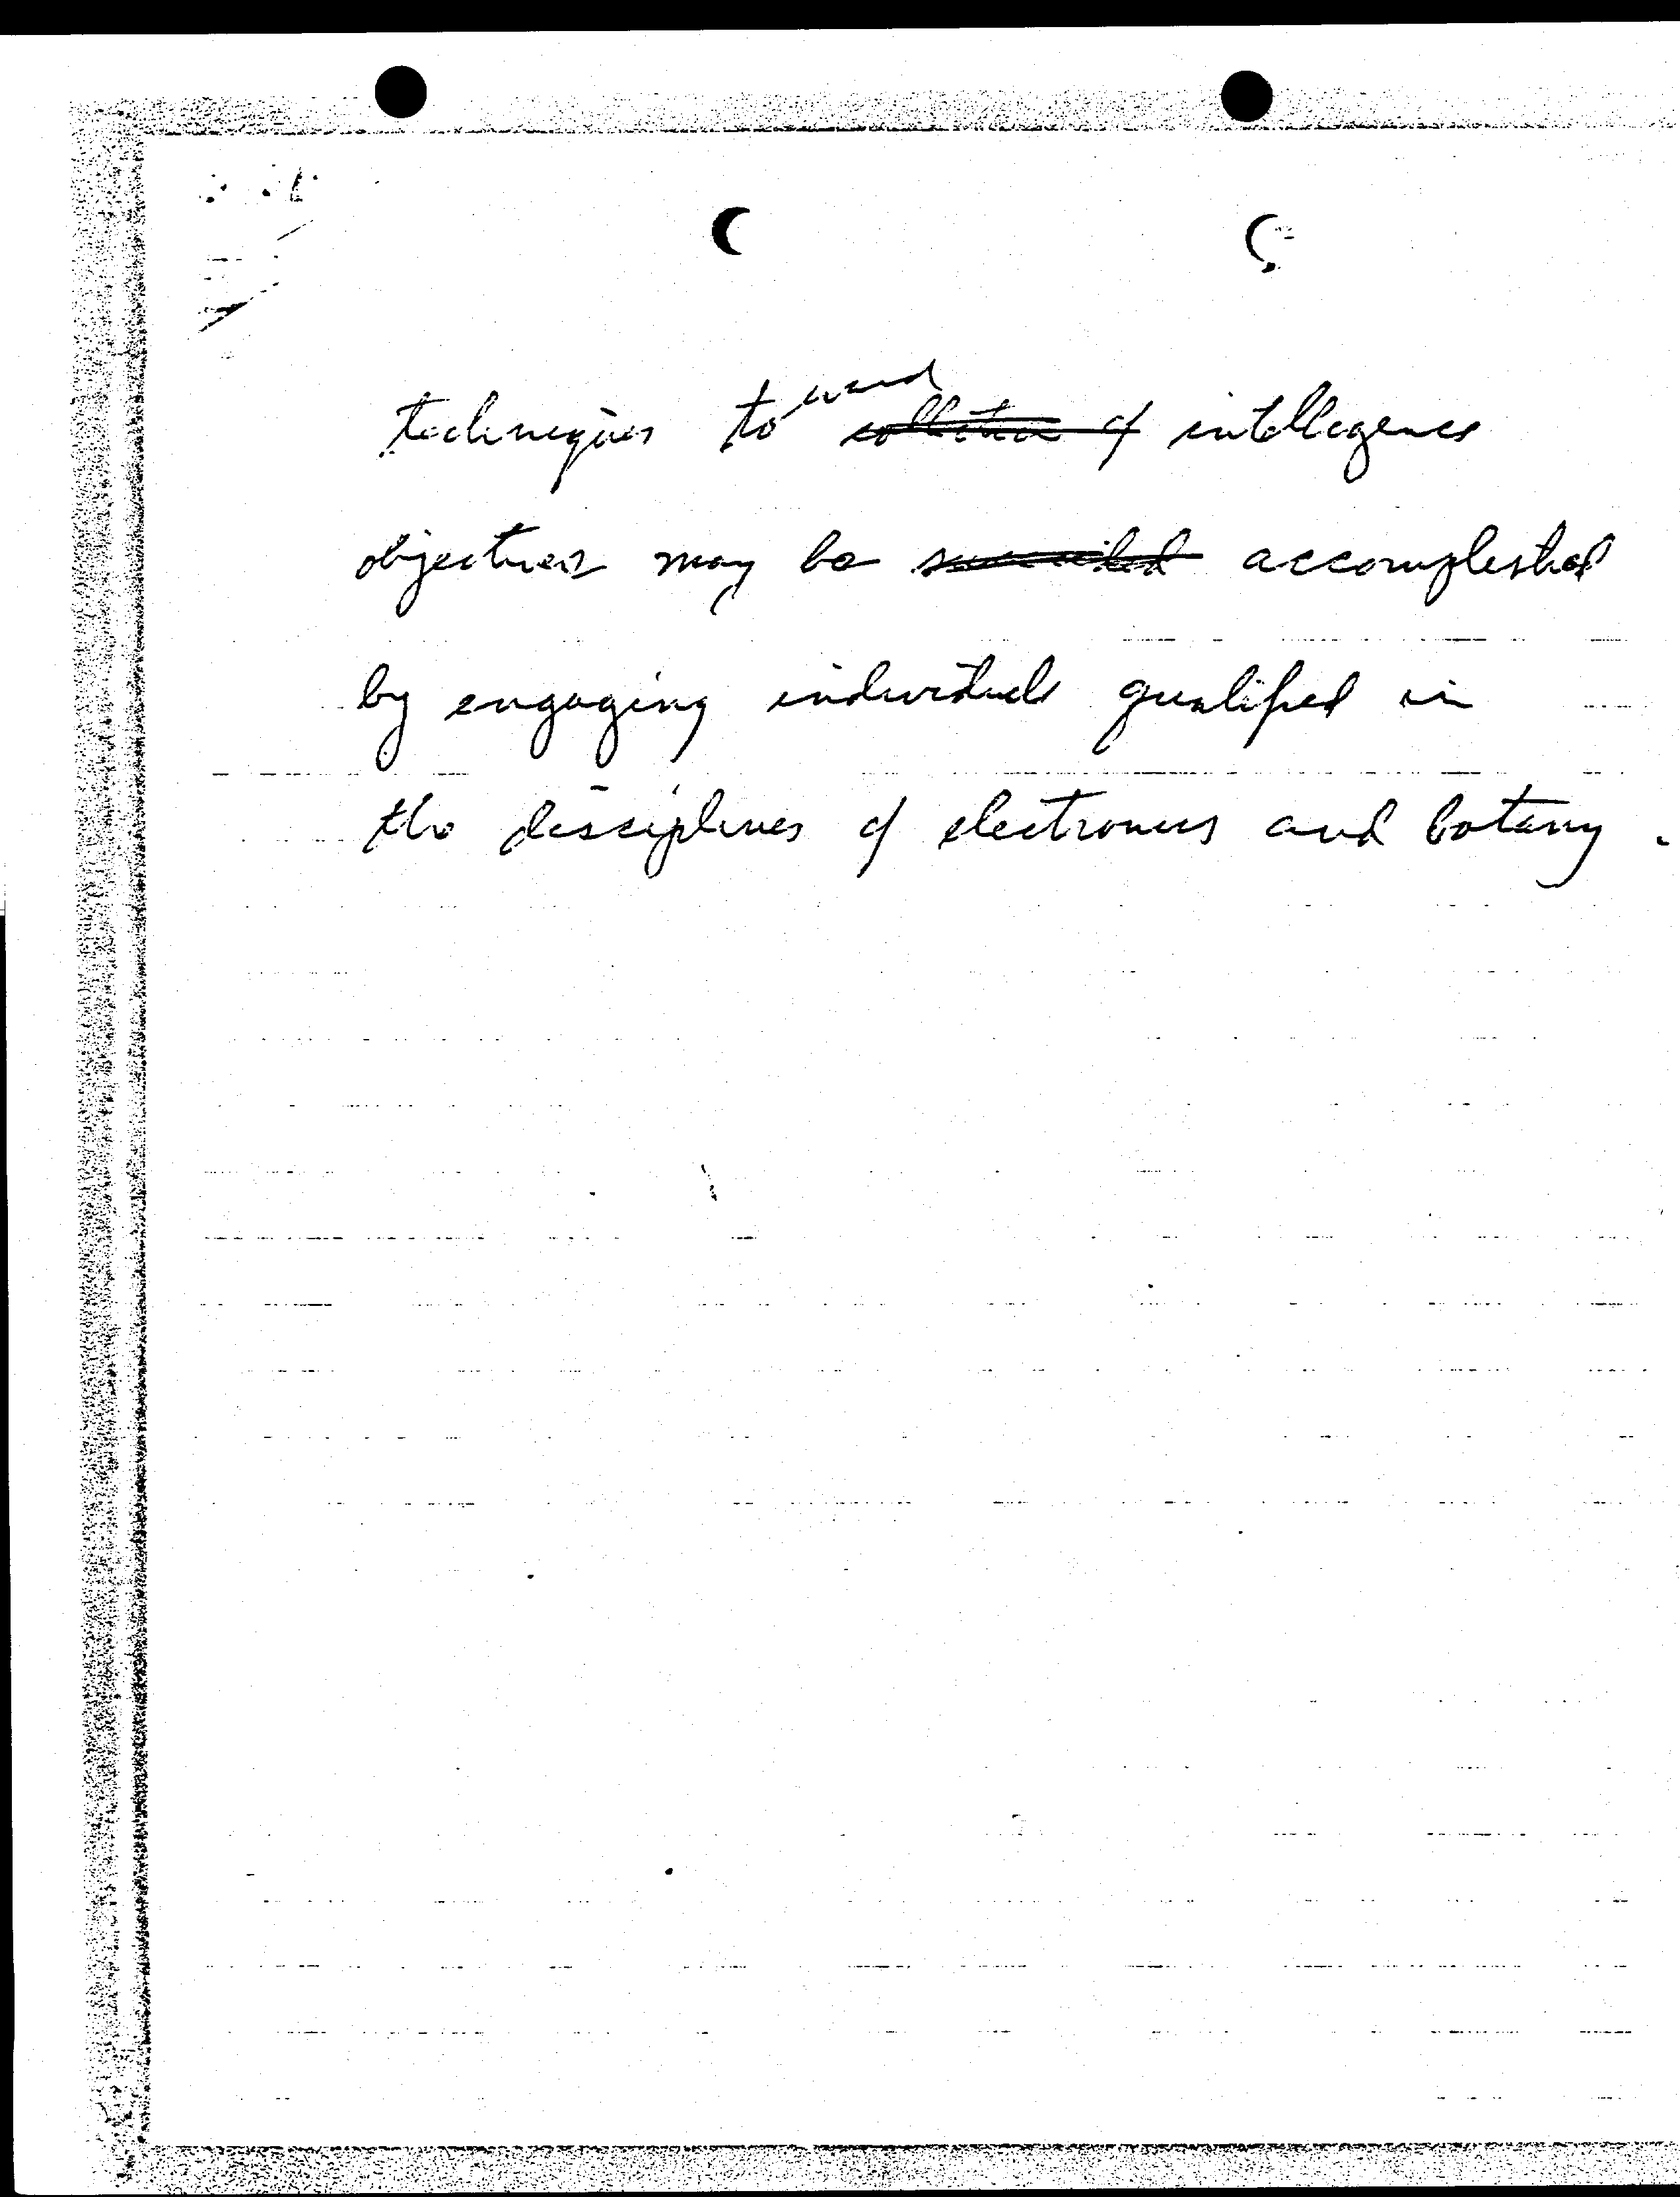 techniques toward ~~collection of~~ intelligence
objectives may be accomplished
by engaging individuals qualified in
the disciplines of electronics and botany.